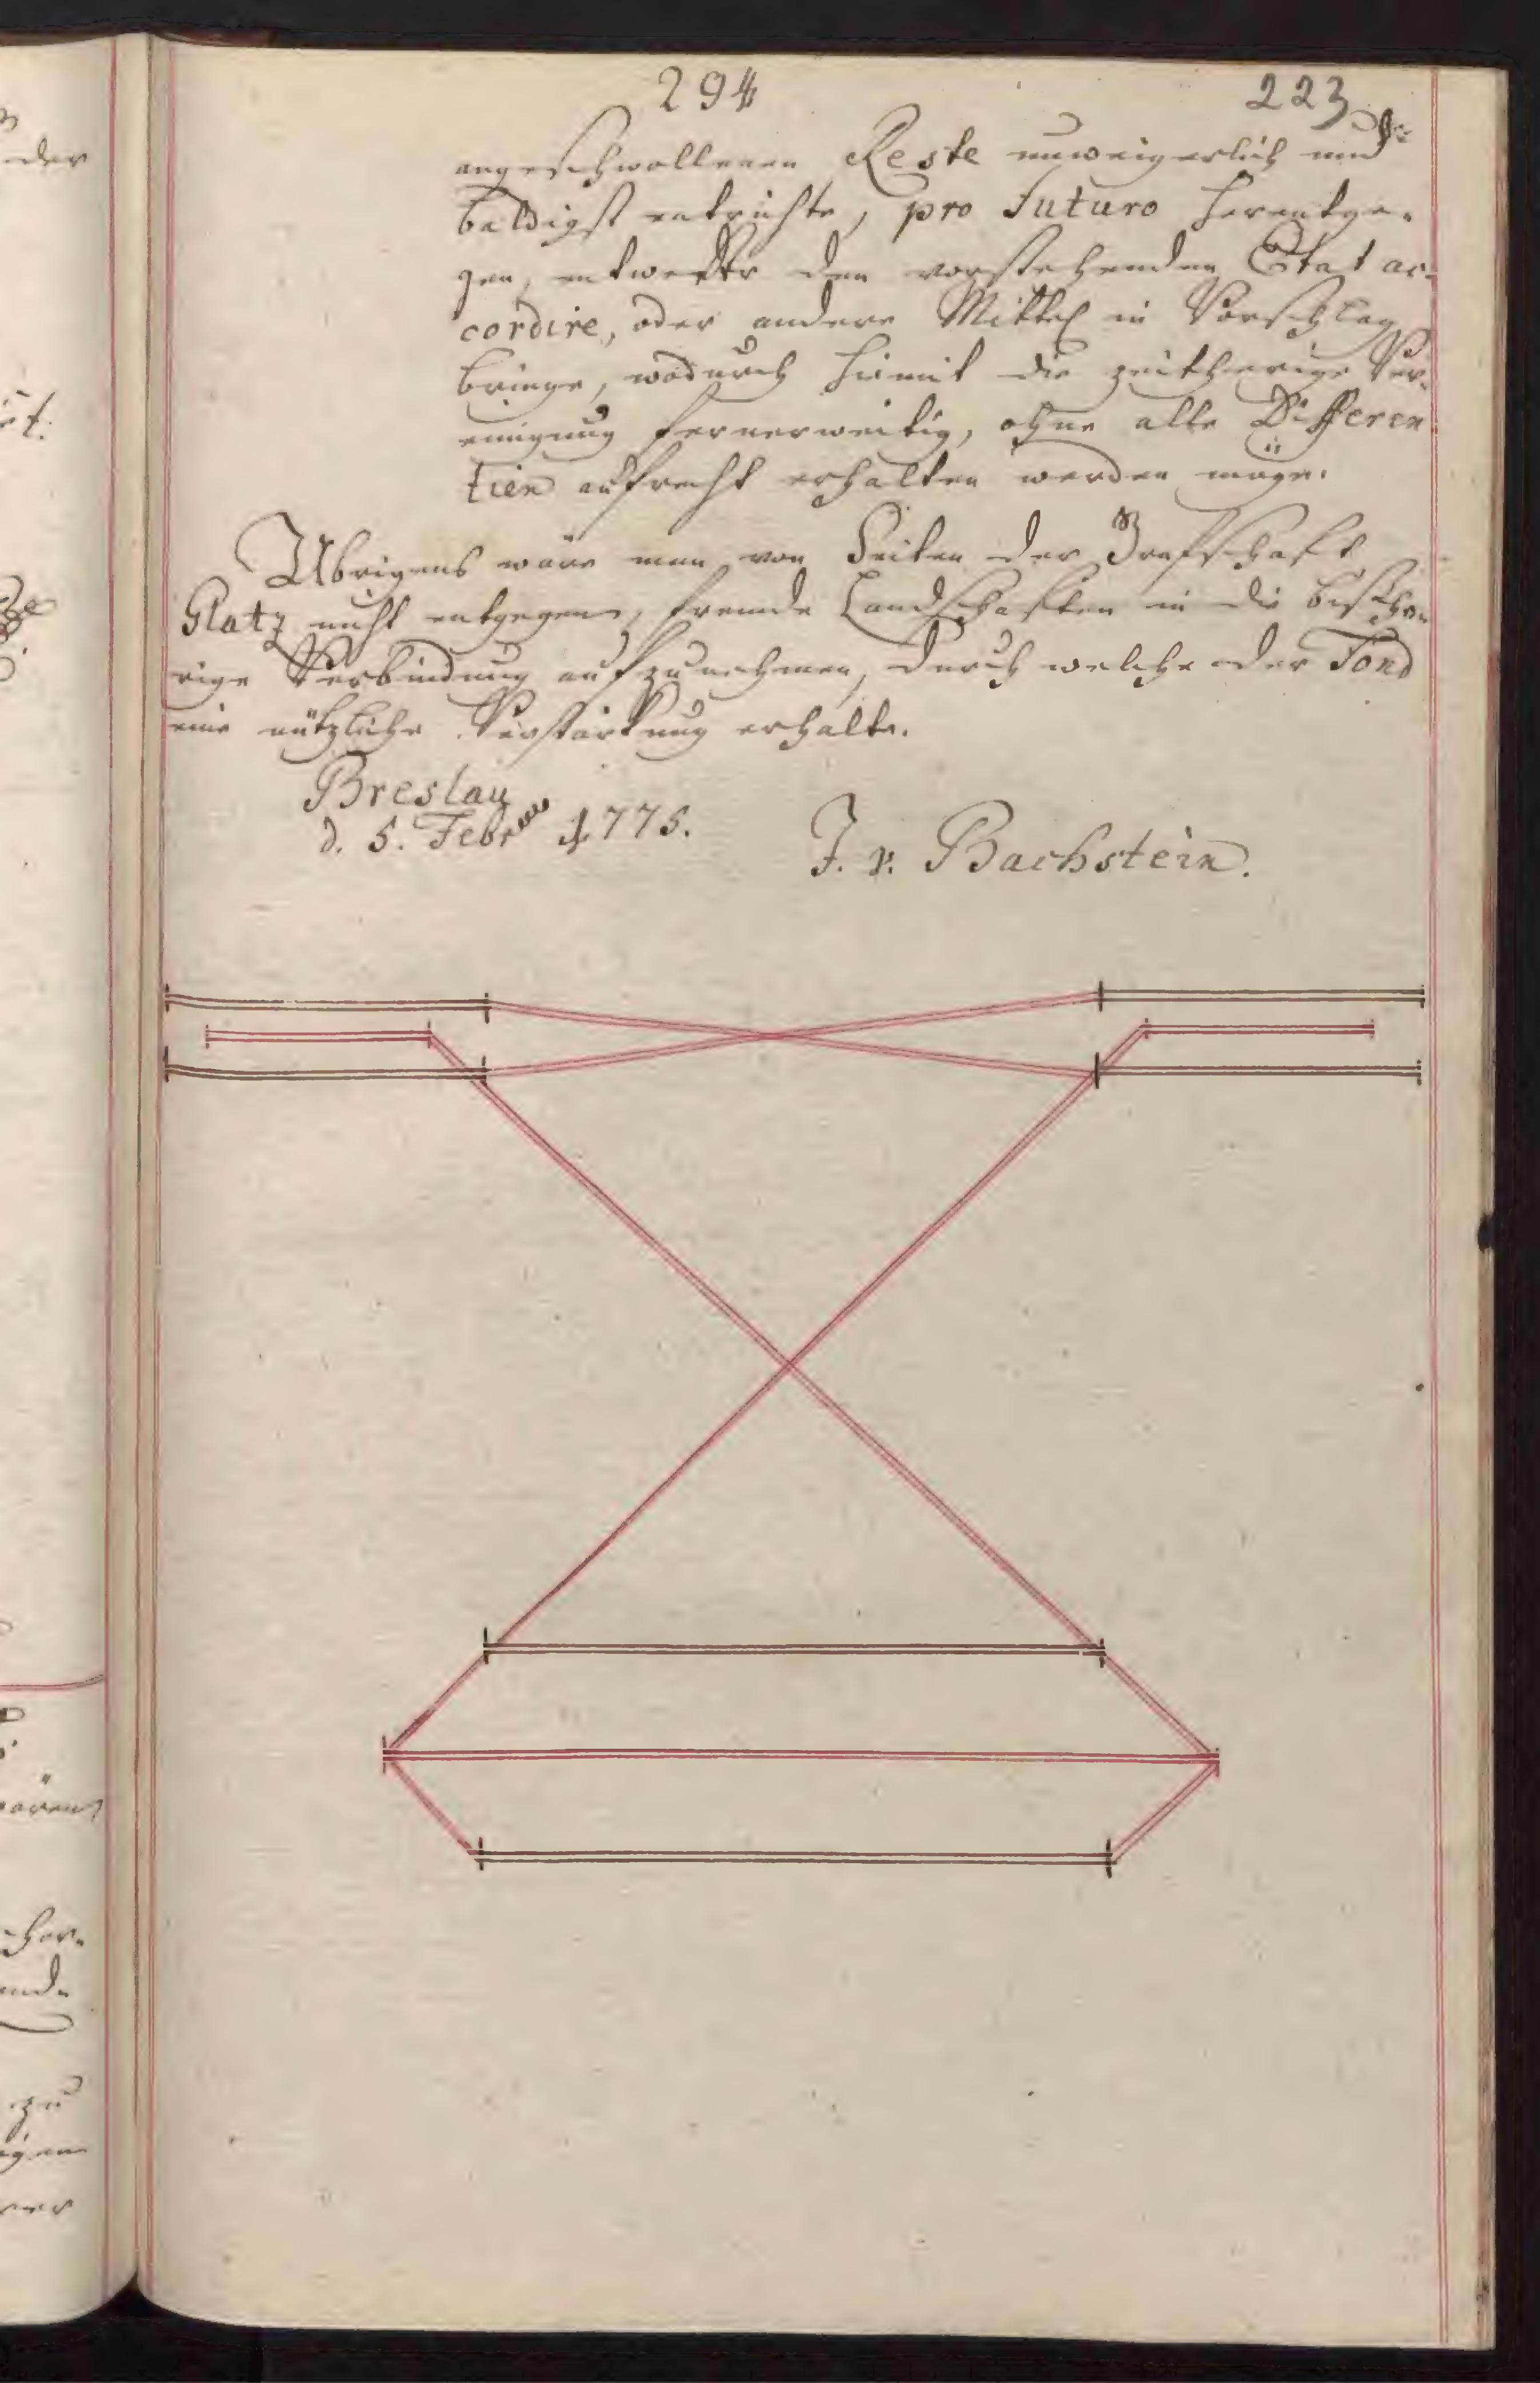 294 223
angeschwollenen Reste unweigerlich und
baldigst entrichte, pro Futuro herentge-
gen, entweder den vorstehenden Etat ac-
cordire, oder andere Mittel in Vorschlag
bringe, wodurch hiemit die zeitherige Ver-
einigung fernerweitig, ohne alle Differen
tien aufrecht erhalten werden möge.
Übrigens wäre man von Seiten der Grafschaft
Glatz nicht entgegen, fremde Landschaften in die bisthe-
rige Verbindung aufzunehmen, durch welche der Fond
eine nützliche Verstärkung erhalte.
Breslau
d. 5. Febr 1775.
J. v. Bachstein.
der
zu